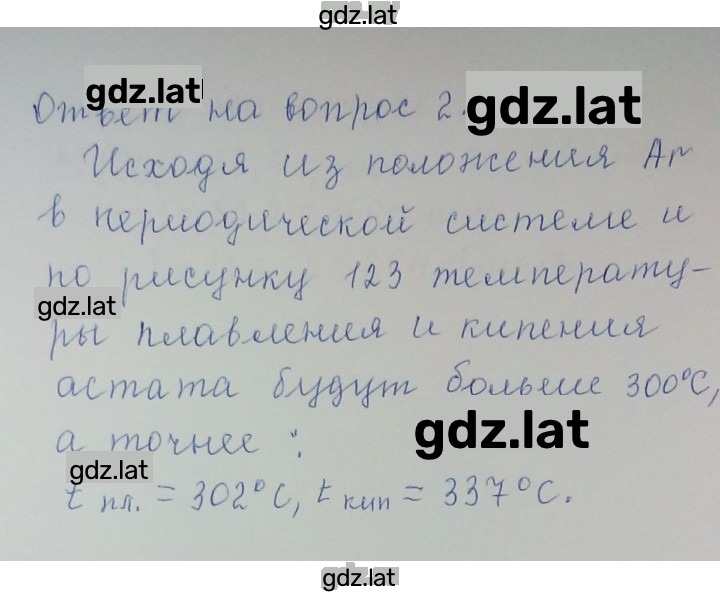 gdz.lat
Ответ на вопрос 2.
gdz.lat
gdz.lat
Исходя из положения Ar
в периодической системе и
по рисунку 123 температу-
gdz.lat
ры плавления и кипения
астата будут больше 300°C,
а точнее :
gdz.lat
gdz.lat
t пл. = 302°C, t кип = 337°C.
gdz.lat